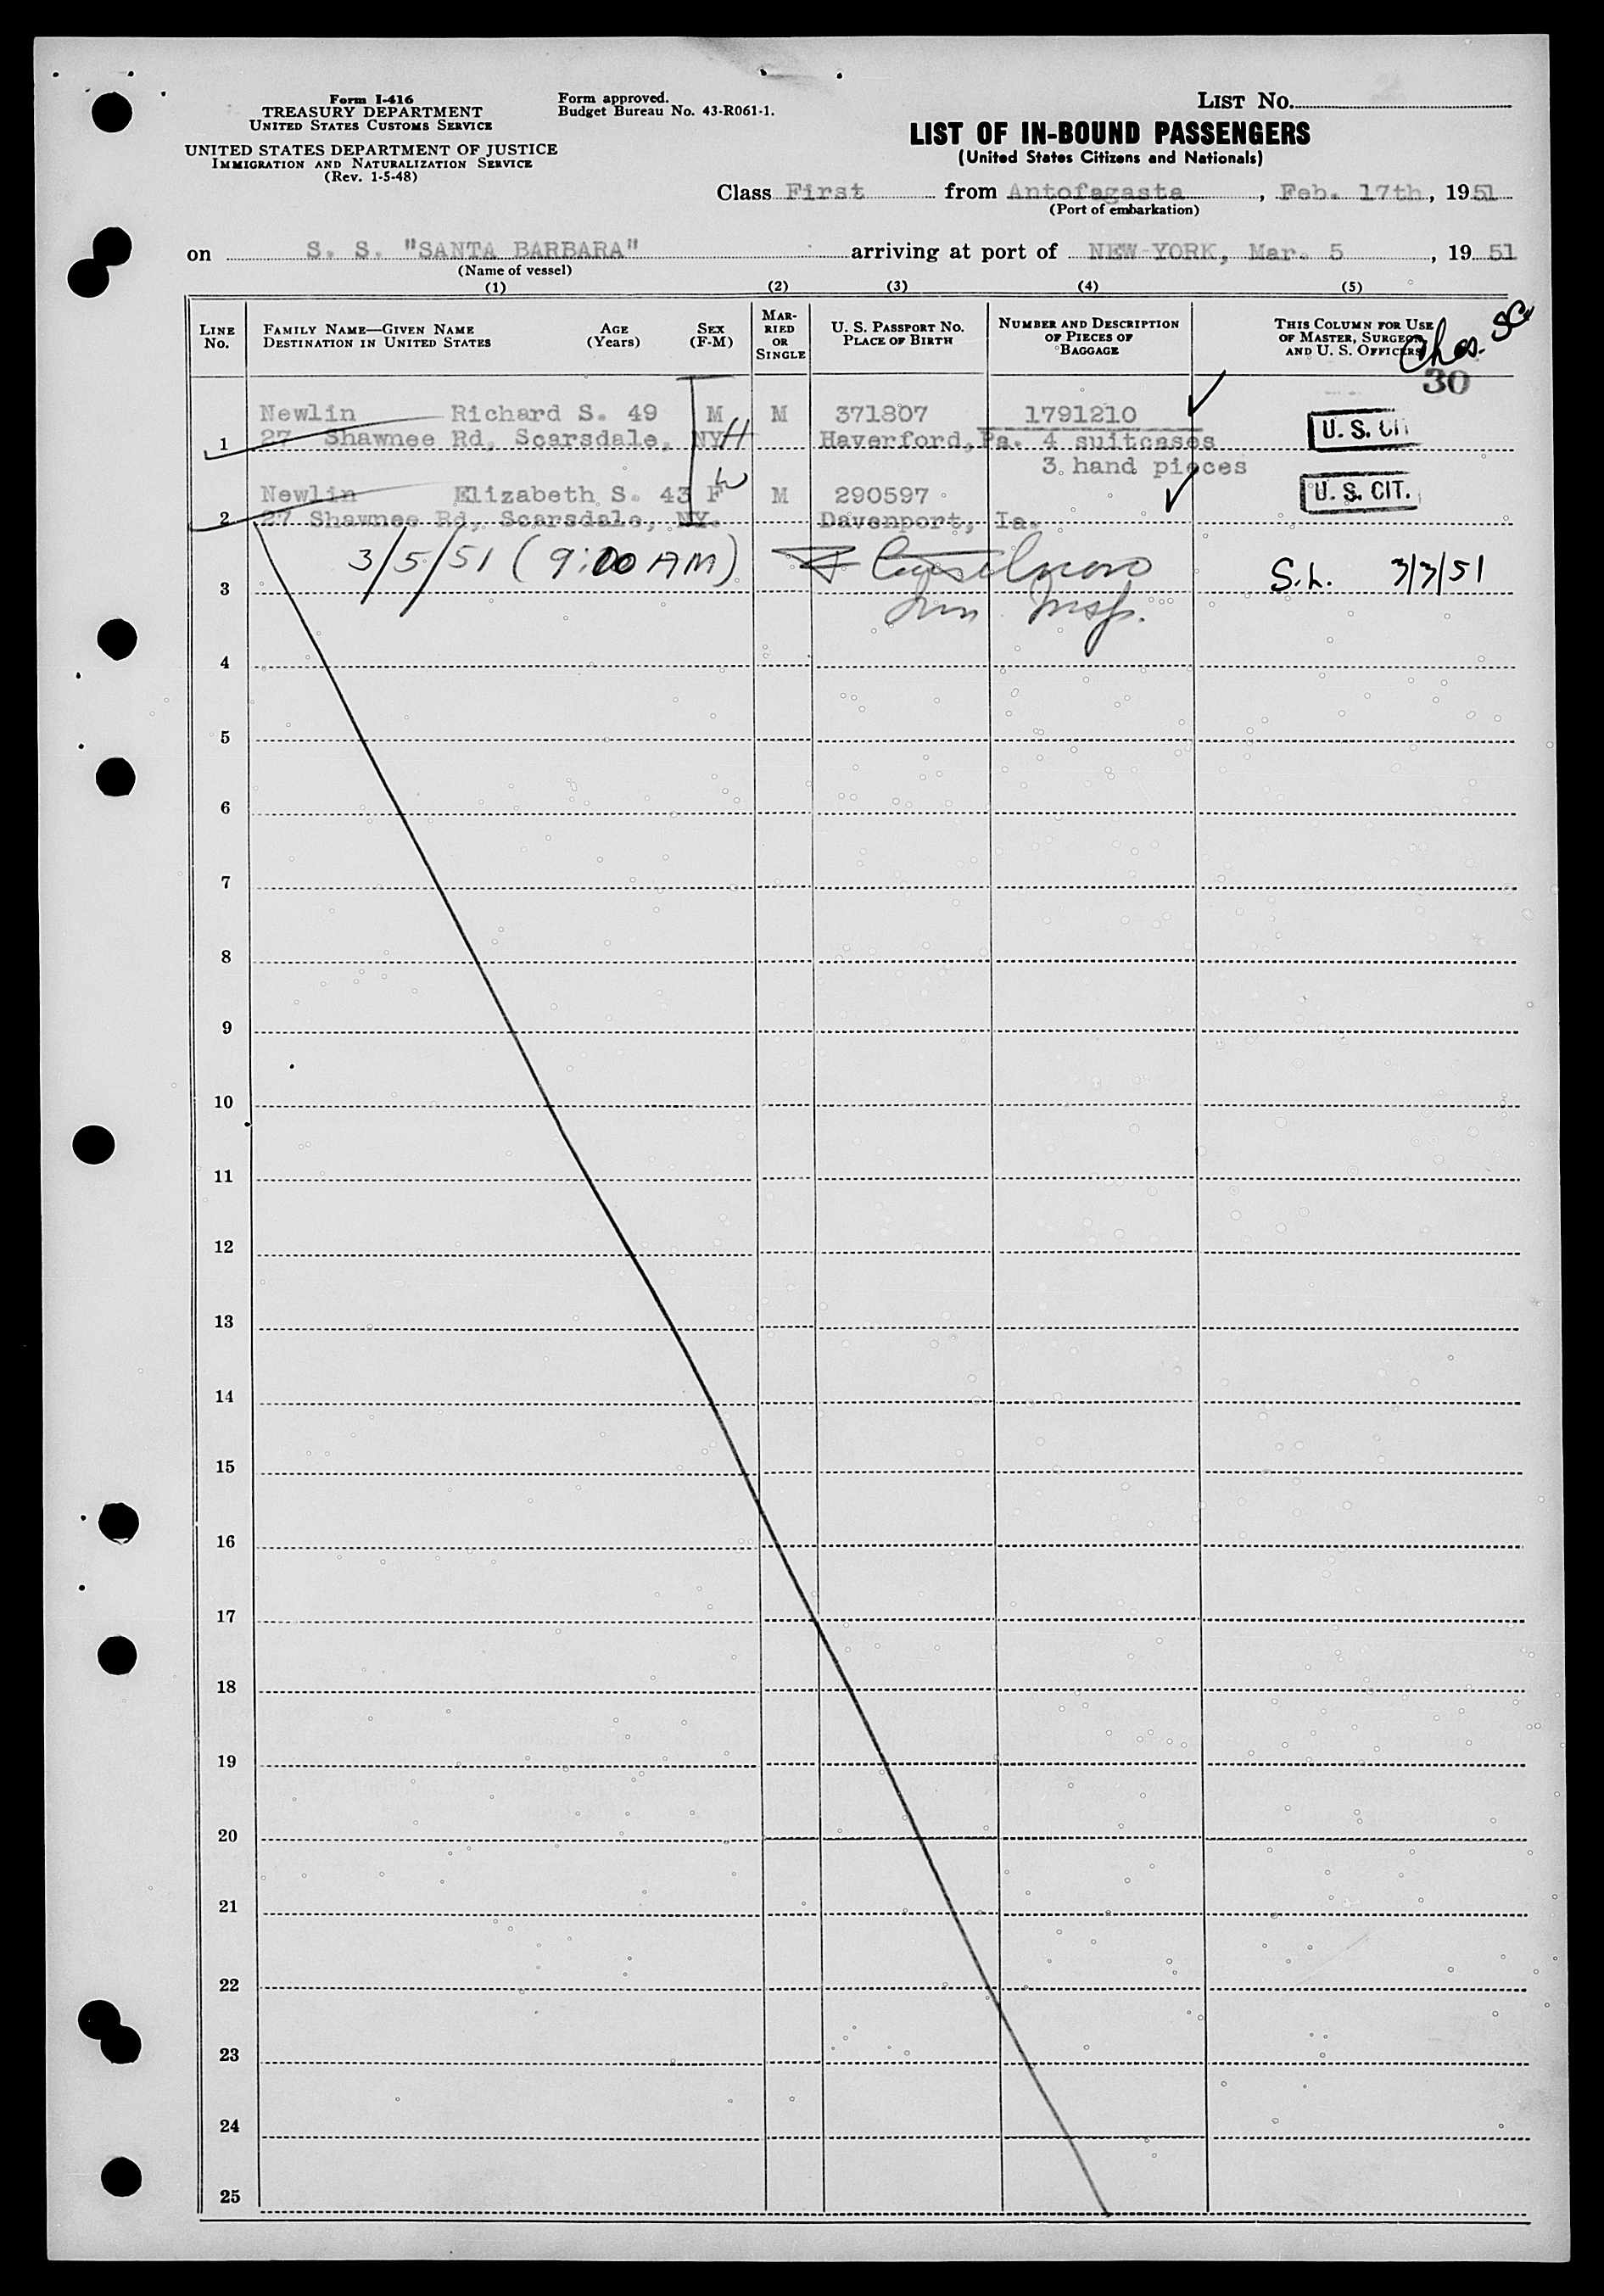 Form I-416
TREASURY DEPARTMENT
UNITED STATES CUSTOMS SERVICE
UNITED STATES DEPARTMENT OF JUSTICE
IMMIGRATION AND NATURALIZATION SERVICE
(Rev. 1-5-48)
Form approved.
Budget Bureau No. 43-R061-1.
LIST NO.
LIST OF IN-BOUND PASSENGERS
(United States Citizens and Nationals)
Class First from Antofagasta, Feb. 17th, 1951
(Port of embarkation)
on S. S. "SANTA BARBARA" arriving at port of NEW YORK, Mar. 5, 1951
(Name of vessel)
(1) (2) (3) (4) (5)
LINE NO.
FAMILY NAME—GIVEN NAME
DESTINATION IN UNITED STATES
AGE
(Years)
SEX
(F-M)
MARRIED
OR
SINGLE
U. S. PASSPORT NO.
PLACE OF BIRTH
NUMBER AND DESCRIPTION
OF PIECES OF
BAGGAGE
THIS COLUMN FOR USE
OF MASTER, SURGEON,
AND U. S. OFFICERS
Chas. SC
30
Newlin Richard S. 49 M M 371807 1791210
1 27 Shawnee Rd, Scarsdale, NY H Haverford, Pa. 4 suitcases U. S. CIT
3 hand pieces
W
Newlin Elizabeth S. 43 F M 290597 U. S. CIT.
2 27 Shawnee Rd, Scarsdale, NY. Davenport, Ia.
3/5/51 (9:00 AM) S.L. 3/3/51
3 Imm Insp.
4
5
6
7
8
9
10
11
12
13
14
15
16
17
18
19
20
21
22
23
24
25